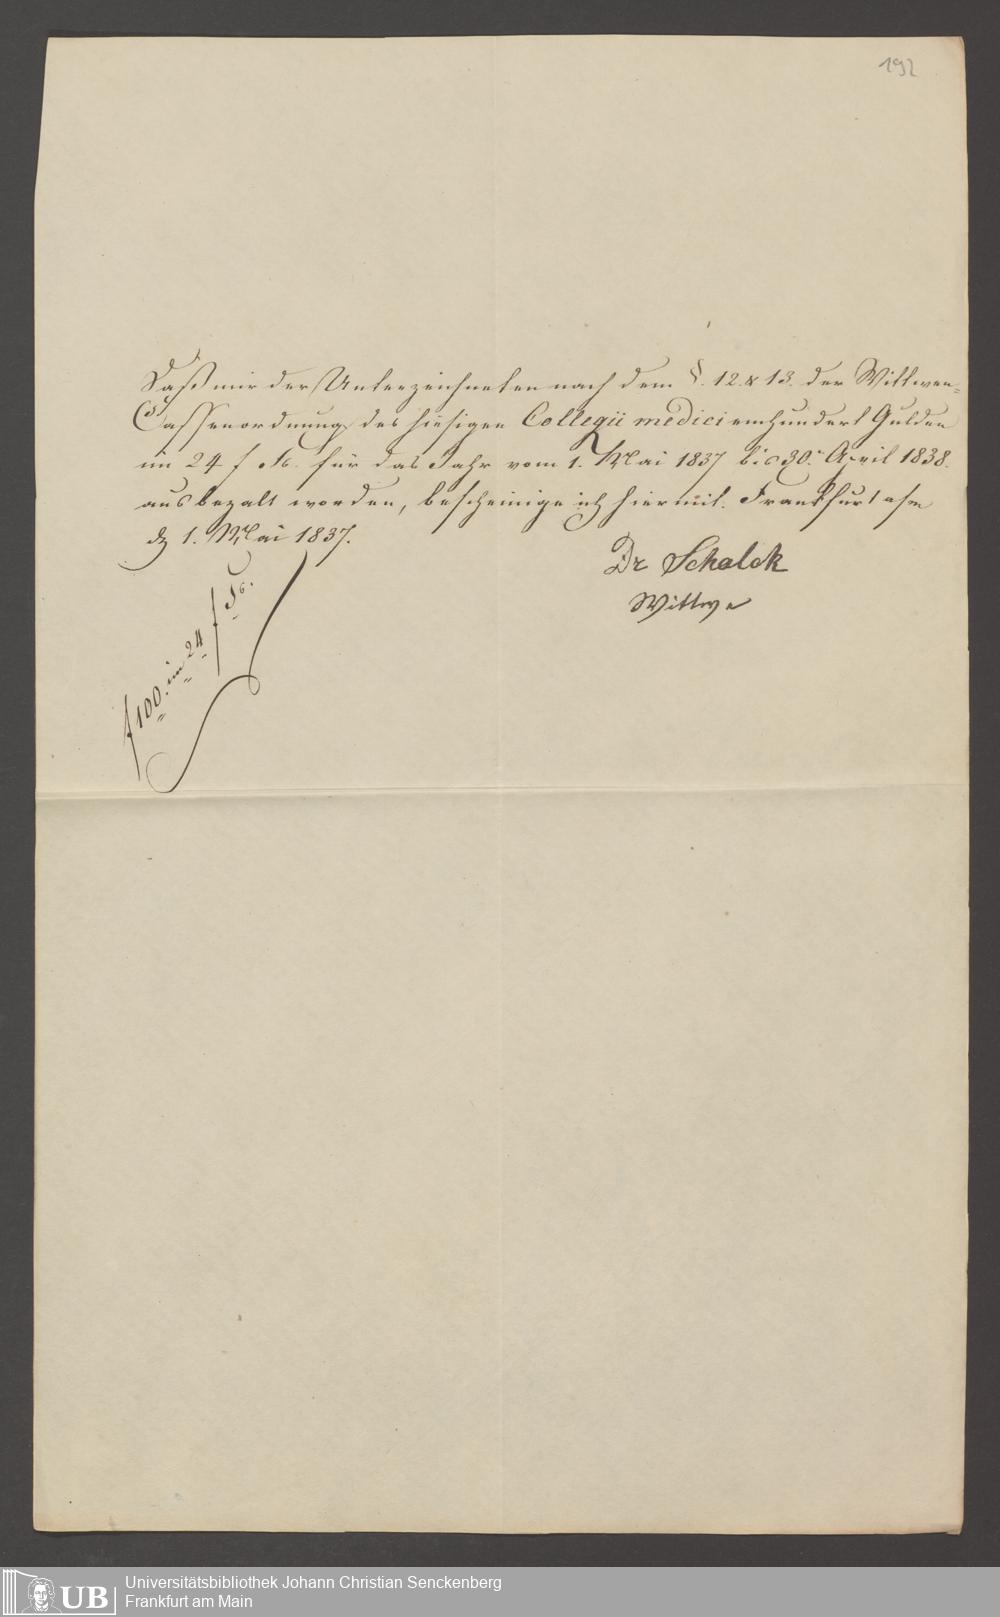 192
Daß mir der Unterzeichneten nach dem §. 12. & 13. der Wittwen-
Cassenordnung des hiesigen Collegii medici einhundert Gulden
im 24 f Fs. für das Jahr vom 1. Mai 1837 bis 30. April 1838.
ausbezalt worden, bescheinige ich hiermit. Frankfurt a/m
d 1. Mai 1837.
Dr Schalck
Wittwe
f 100. im 24 f Fs.
Universitätsbibliothek Johann Christian Senckenberg
Frankfurt am Main
UB